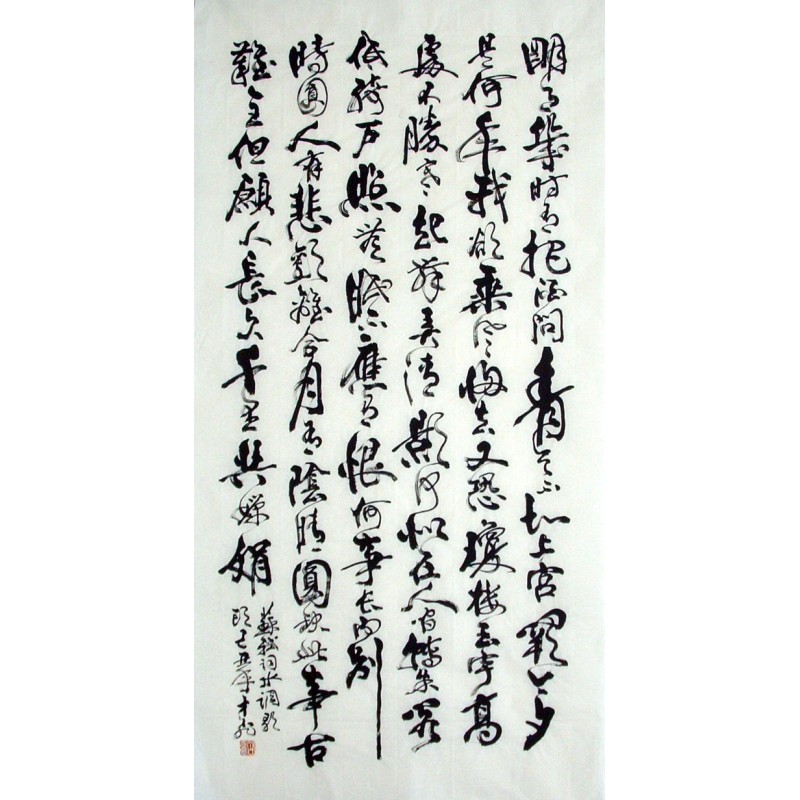 明月幾時有把酒問青天不知上宮闕今夕
是何年我欲乘風歸去又恐瓊樓玉宇高
處不勝寒起舞弄清影何似在人間轉朱閣
低綺戶照無眠不應有恨何事長向別
時圓人有悲歡離合月有陰晴圓缺此事古
難全但願人長久千里共嬋娟
蘇軾詞水調歌
頭己丑年